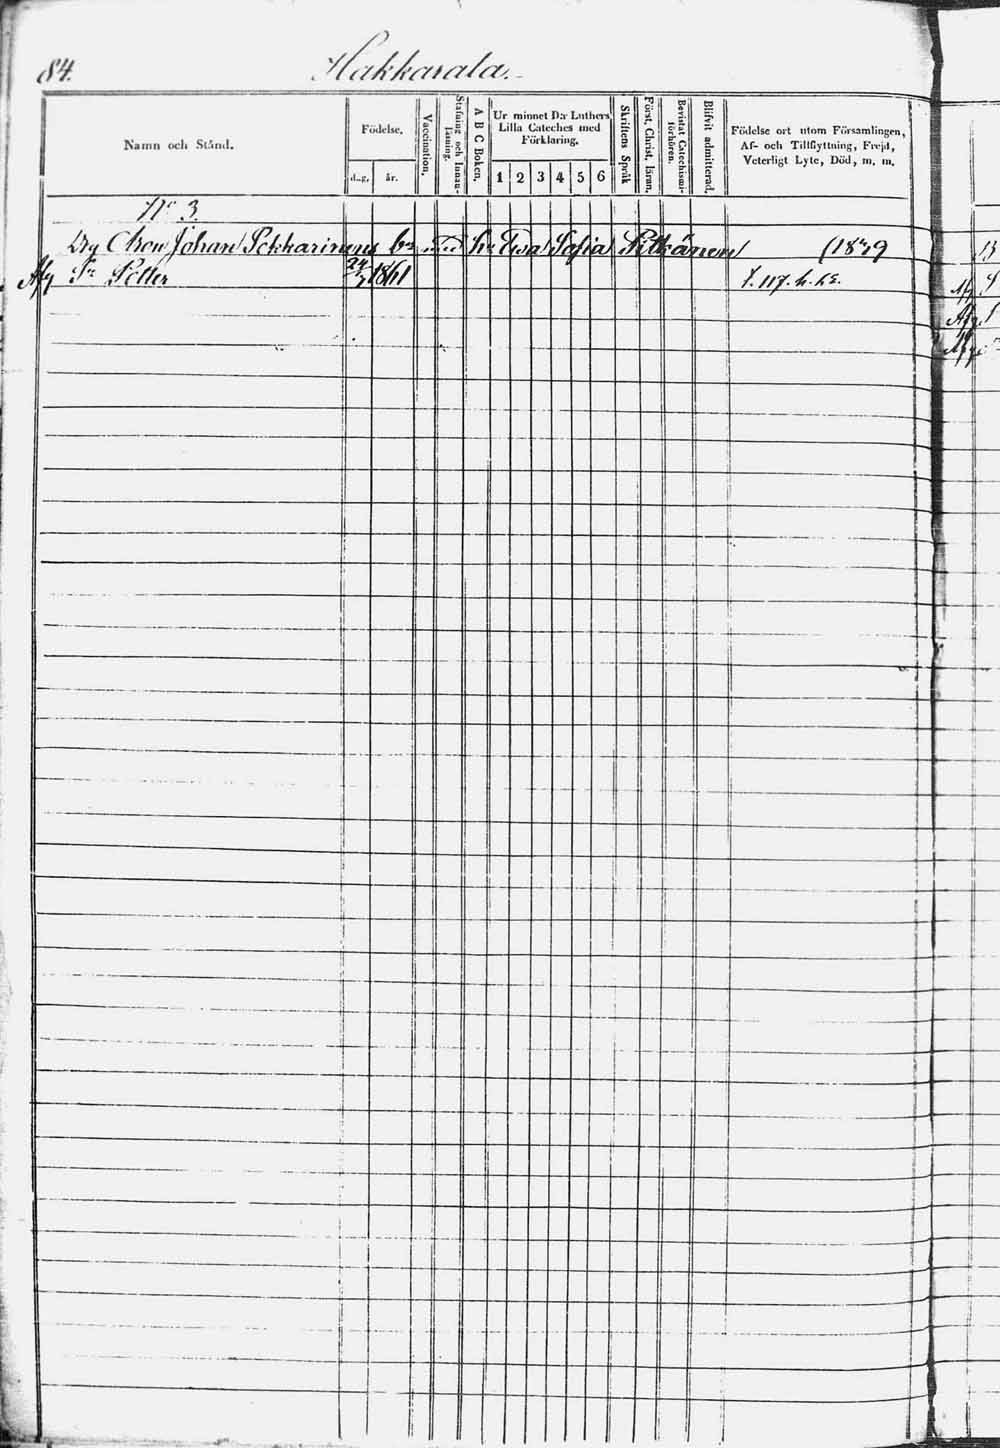 84.
Hakkarala.
Namn och Stånd.
Födelse.
dag. år.
Vaccination.
Stafning och Innan-läsning.
A B C Boken.
Ur minnet D:r Luthers
Lilla Cateches med
Förklaring.
1 2 3 4 5 6
Skriftens Språk
Först. Christ. läran.
Bevistat Catechismi-förhören.
Blifvit admitterad.
Födelse ort utom Församlingen,
Af- och Tillflyttning, Frejd,
Veterligt Lyte, Död, m. m.
No 3.
Johan Pekkarinens med Ewa Sofia Pitkänen
Afg Petter 1861 117.
Afg
Afg
Afg